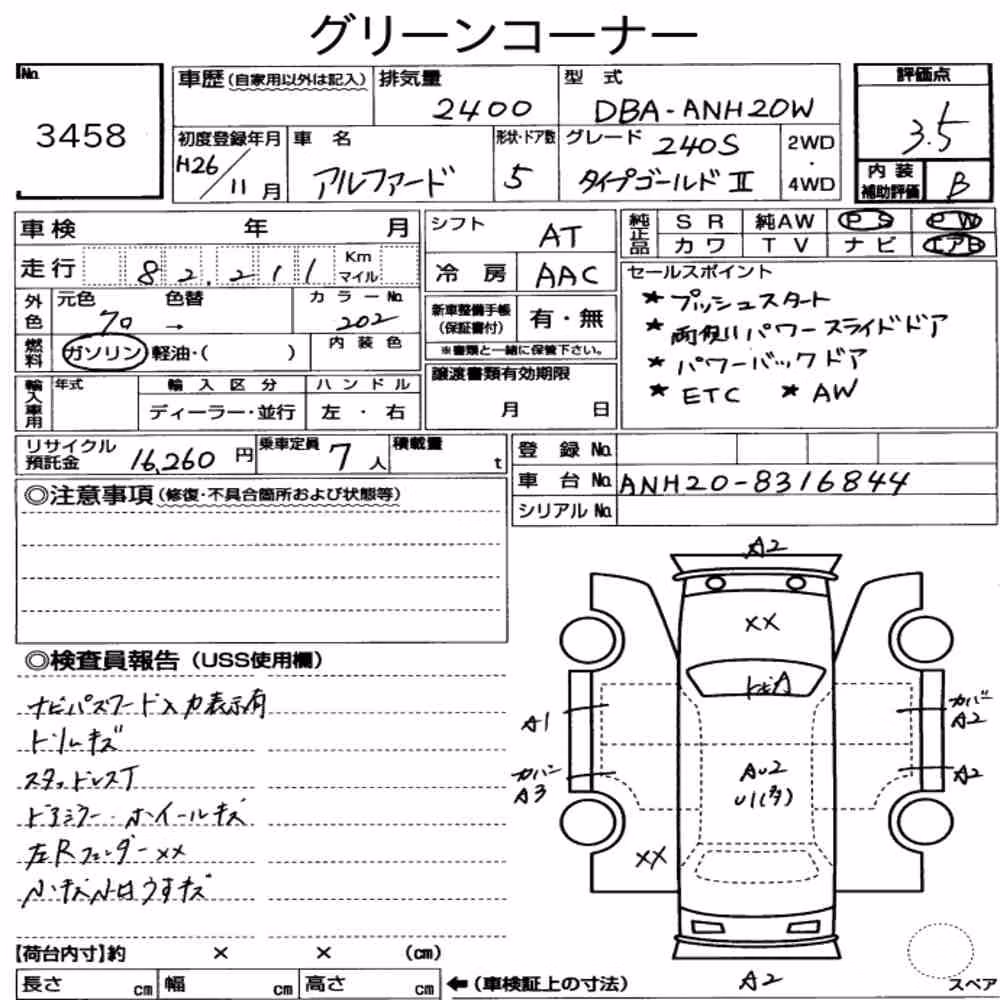 グリーンコーナー
No. 3458
車歴(自家用以外は記入) 排気量 2400 型式 DBA-ANH20W 評価点 3.5
初度登録年月 H26/11月 車名 アルファード 形状・ドア数 5 グレード 240S タイプゴールドⅡ 2WD・4WD
内装補助評価 B
車検 年 月 シフト AT 純正品 SR 純AW PS PW
カワ TV ナビ エアB
走行 82,211 Km マイル 冷房 AAC
セールスポイント
外色 元色 70 → 色替 カラーNo. 202
新車整備手帳(保証書付) 有・無
※書類と一緒に保管下さい。
★プッシュスタート
★両側パワースライドドア
★パワーバックドア
★ETC ★AW
燃料 ガソリン 軽油・( ) 内装色
譲渡書類有効期限 月 日
輸入車用 年式 輸入区分 ハンドル
ディーラー・並行 左・右
リサイクル預託金 16,260円 乗車定員 7人 積載量 t
登録No.
車台No. ANH20-8316844
シリアルNo.
◎注意事項(修復・不具合箇所および状態等)
◎検査員報告(USS使用欄)
ナビパスワード入力表示有
トリムキズ
スタッドレスT
ドアミラー・ホイールキズ
左Rフェンダーxx
小キズ小凹うすキズ
A2
XX
トビA
A1
カバー A2
カバー A3
A2
AU2
U1(タ)
XX
A2
【荷台内寸】約 × × (cm)
長さ cm 幅 cm 高さ cm ←(車検証上の寸法)
スペア